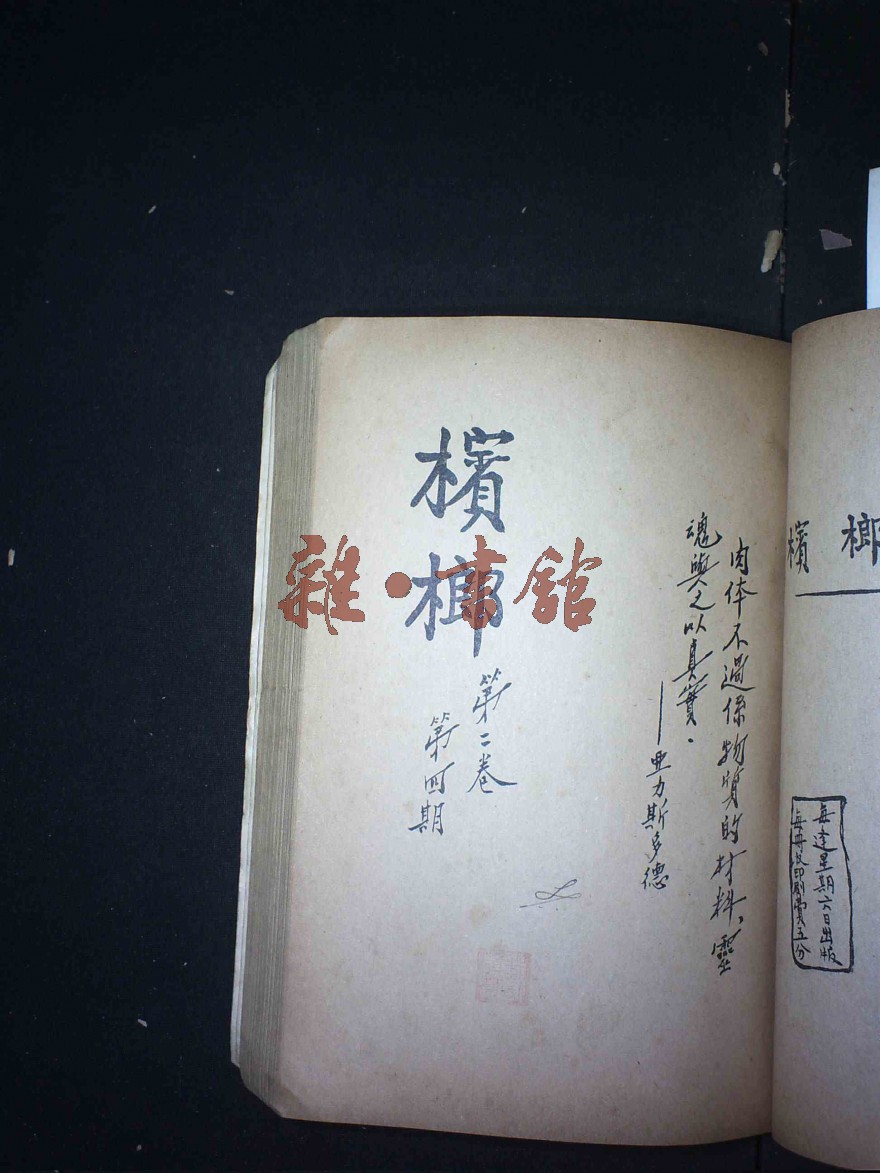 肉体不過係物質的材料，靈
魂與之以真實。
——亜力斯多德
檳榔
第二卷
第四期
雜·書館
檳榔
每逢星期六日出版
每冊收印刷費五分